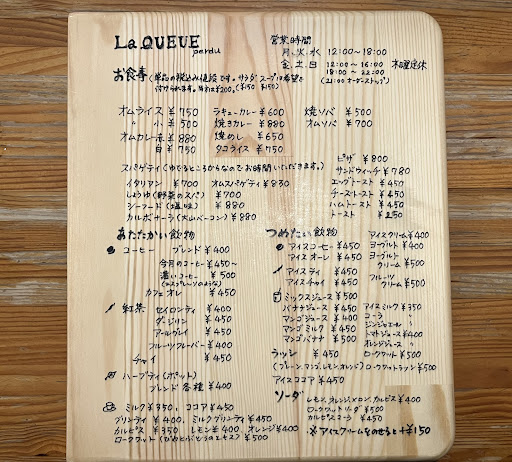 La QUEUE
perdu
営業時間
月、火、水 12:00~18:00
金、土、日 12:00~16:00 木曜定休
18:00~22:00
(21:00オーダーストップ)
お食事 (単品の税込み値段です。サラダ、スープは希望で
付けられます。両方は¥200。(¥50 ¥150)
オムライス ¥750
〃 小 ¥500
オムカレー赤 ¥880
白 ¥750
ラキューカレー ¥600
焼きカレー ¥880
焼めし ¥650
タコライス ¥750
焼ソバ ¥500
オムソバ ¥700
スパゲティ (ゆでるところからなのでお時間いただきます。)
イタリアン ¥700 オムスパゲティ ¥830
しょうゆ(野菜のスパ) ¥700
シーフード(塩味) ¥880
カルボナーラ(大山ベーコン) ¥880
ピザ ¥800
サンドウィッチ ¥780
エッグトースト ¥450
チーズトースト ¥450
ハムトースト ¥450
トースト ¥250
あたたかい飲物
コーヒー ブレンド ¥400
今月のコーヒー ¥450~
濃いコーヒー ¥500
(エスプレーソのような)
カフェオレ ¥450
紅茶 セイロンティ ¥400
ダージリン ¥450
アールグレイ ¥450
フルーツフレーバー ¥400
チャイ ¥450
ハーブティ(ポット)
ブレンド 各種 ¥400
ミルク ¥350、ココア ¥450
グリーンティ ¥400、ミルクグリンティ ¥450
カルピス ¥350 レモン ¥400、オレンジ ¥400
ロークワット(びわとぶどうのエキス) ¥500
つめたい飲物
アイスコーヒー ¥450
アイスオーレ ¥450
アイスティ ¥450
アイスチャイ ¥450
ミックスジュース ¥500
バナナジュース ¥450
マンゴジュース ¥400
マンゴミルク ¥450
マンゴバナナ ¥500
ラッシー ¥450
(プレーン、マンゴ、レモン、オレンジ)
アイスココア ¥450
アイスクリーム ¥400
ヨーグルト ¥400
ヨーグルト
クリーム ¥500
フルーツ
クリーム ¥500
アイスミルク ¥350
コーラ 〃
ジンジャエール 〃
トマトジュース ¥400
オレンジジュース 〃
ロークワット ¥500
ロークワットラッシ ¥500
ソーダ レモン、オレンジ、メロン、カルピス ¥400
ロークワットソーダ ¥500
カルピスコーラ ¥450
※アイスクリームをのせると+¥150